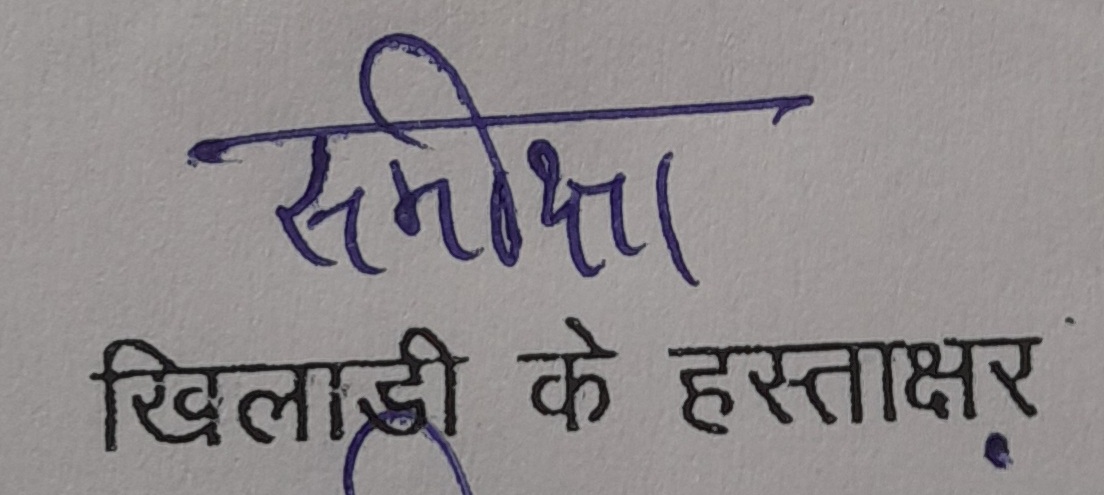 समीक्षा
खिलाडी के हस्ताक्षर